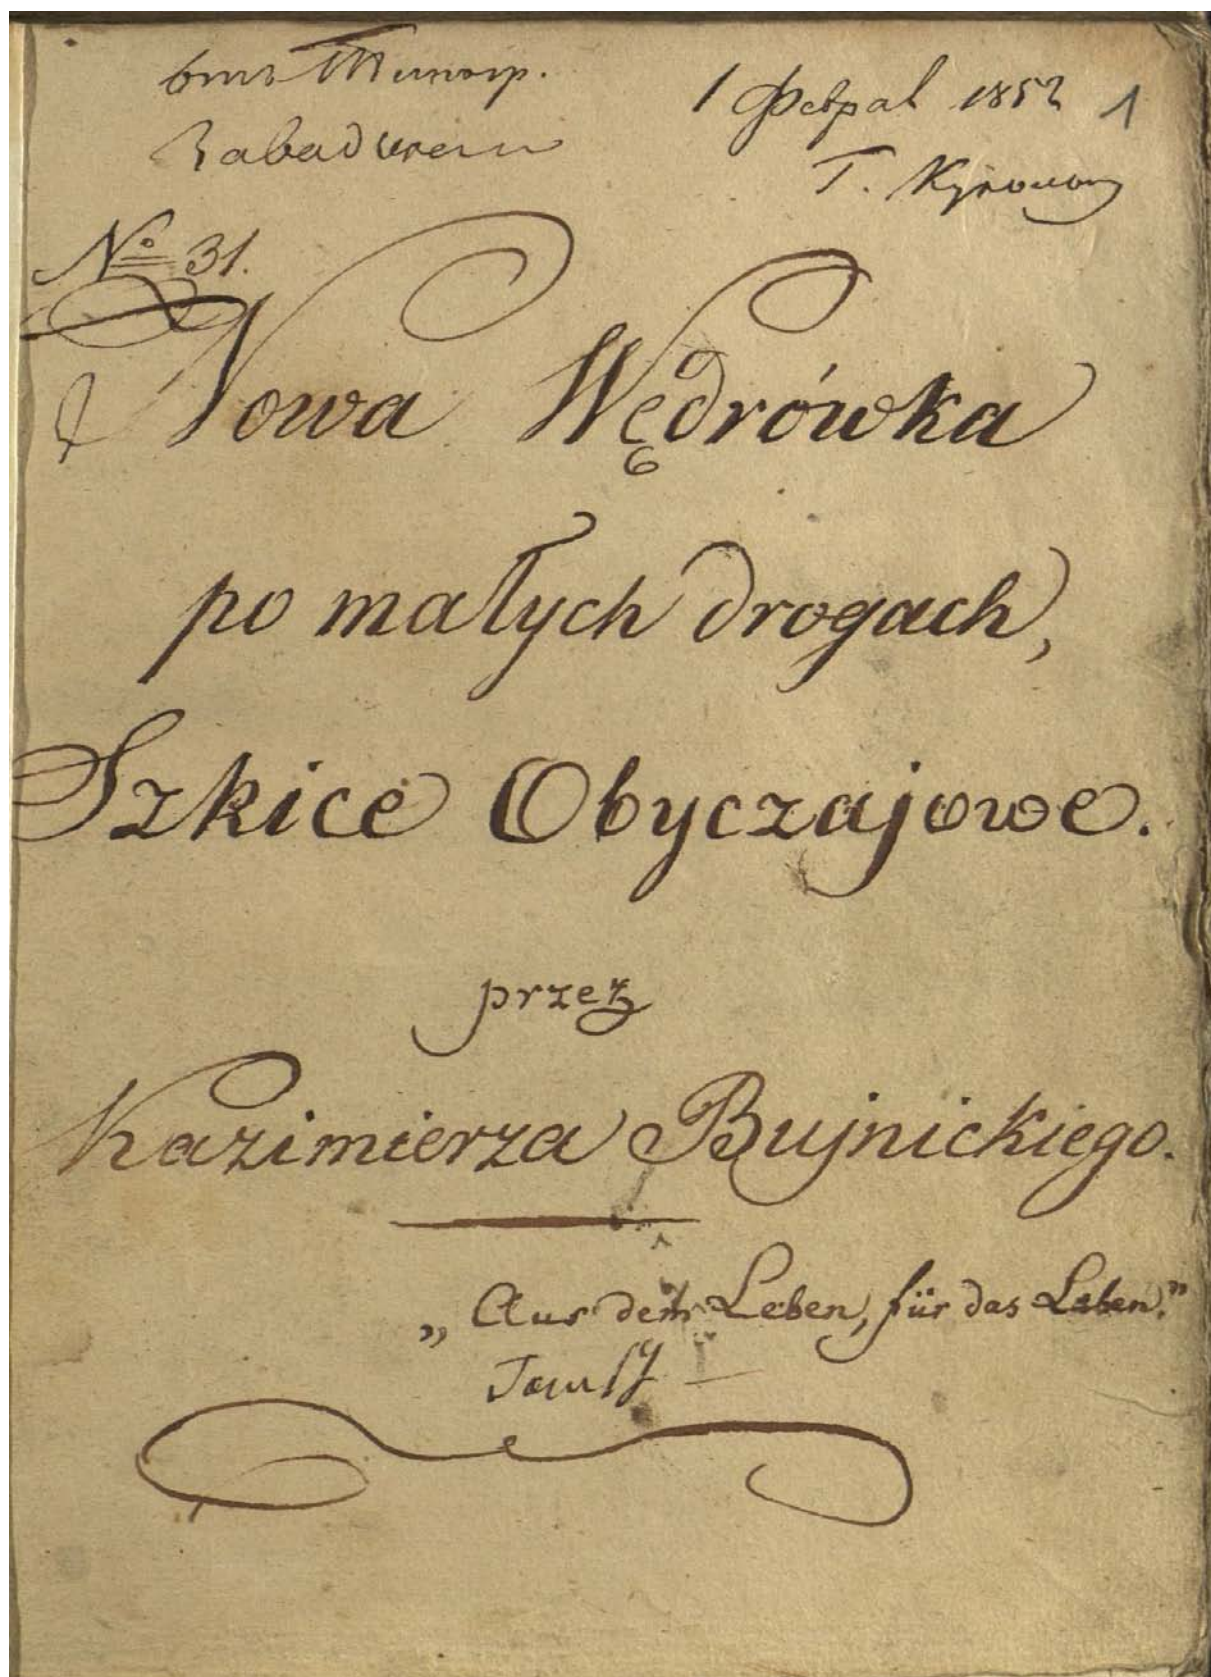 1 Феврал 1852 1
№ 31.
Nowa Wędrówka
po małych drogach,
Szkice Obyczajowe.
przez
Kazimierza Bujnickiego.
„Aus dem Leben, für das Leben."